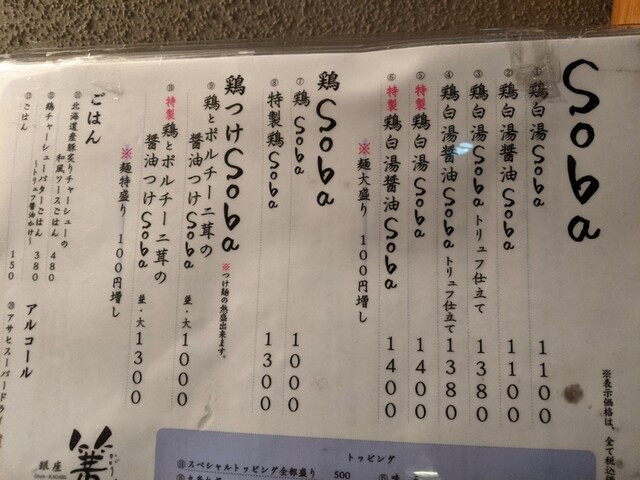 Soba
① 鶏白湯Soba 1100
② 鶏白湯醤油Soba 1100
③ 鶏白湯Soba トリュフ仕立て 1380
④ 鶏白湯醤油Soba トリュフ仕立て 1380
⑤ 特製鶏白湯Soba 1400
⑥ 特製鶏白湯醤油Soba 1400
※麺大盛り 100円増し
鶏Soba
⑦ 鶏Soba 1000
⑧ 特製鶏Soba 1300
鶏つけSoba
※つけ麺の熱盛出来ます。
⑨ 鶏とポルチーニ茸の
醤油つけSoba 並・大 1000
⑩ 特製鶏とポルチーニ茸の
醤油つけSoba 並・大 1300
※麺特盛り 100円増し
ごはん
⑪ 北海道産豚炙りチャーシューの
和風ソースごはん 480
⑫ 鶏チャーシューバターごはん 380
～トリュフ醤油かけ～
⑬ ごはん 150
アルコール
アサヒスーパードライ
※表示価格は、全て税込
トッピング
⑭ スペシャルトッピング全部盛り 500
味
銀座
篝